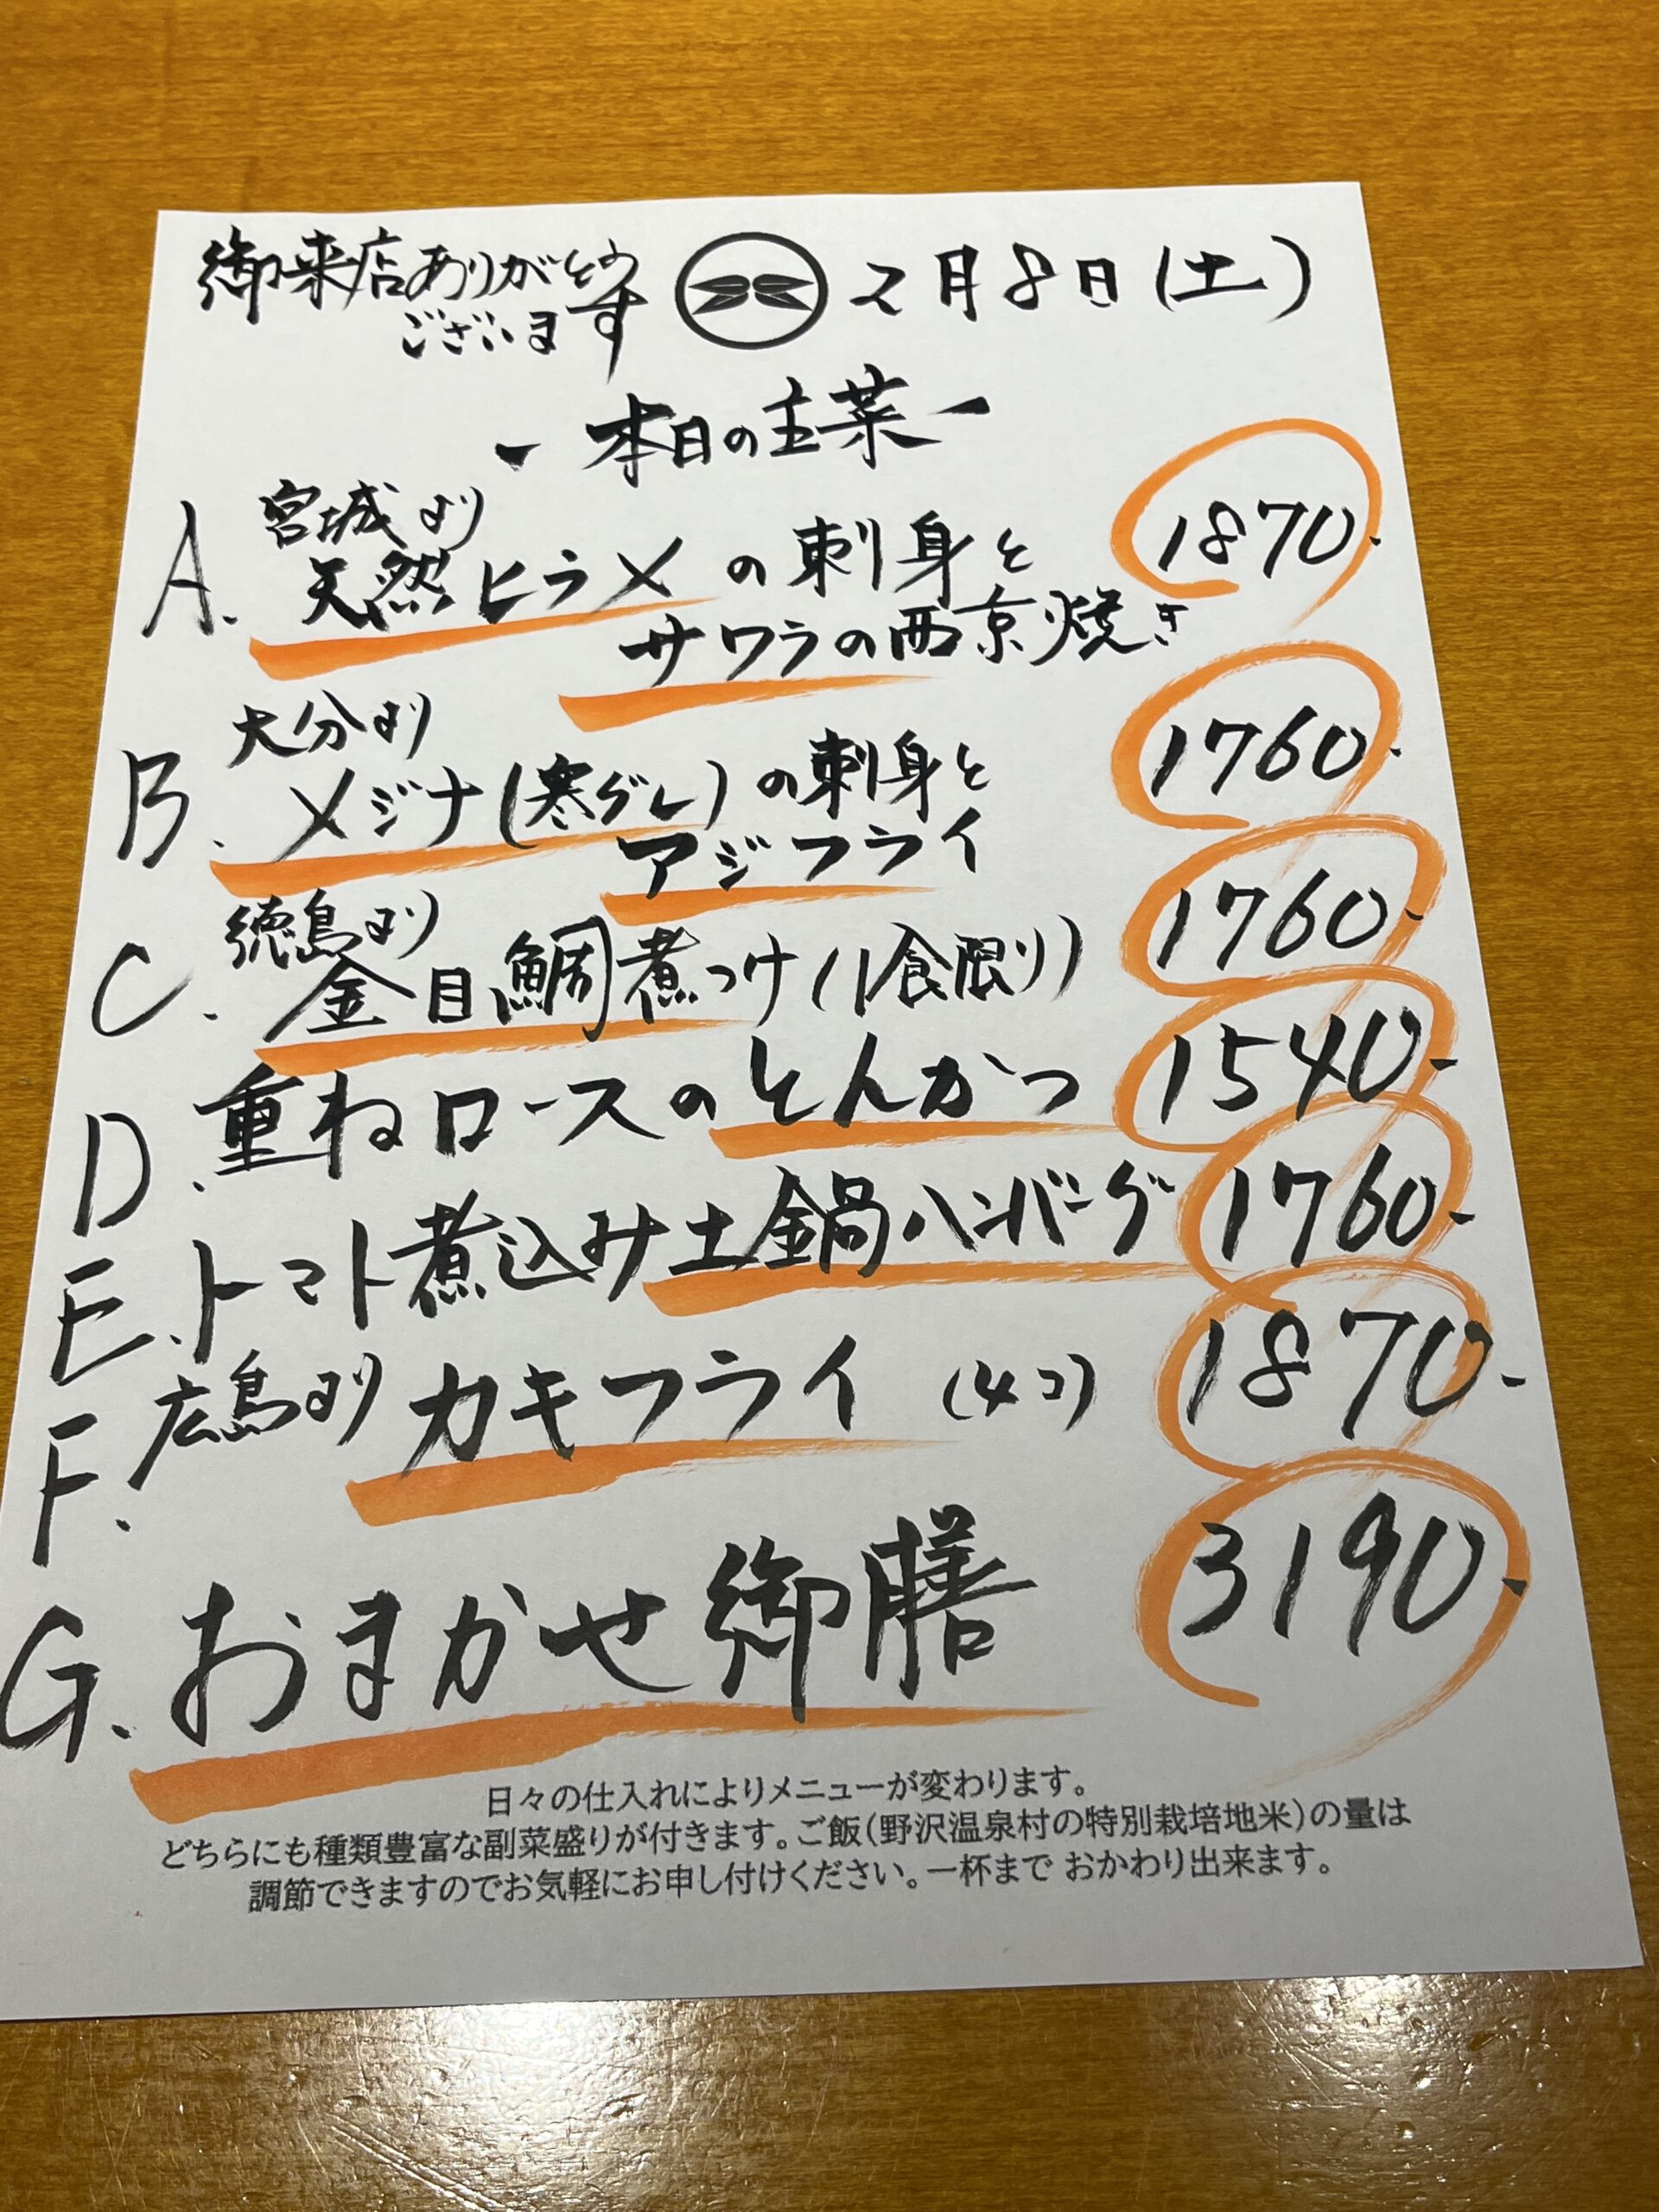 御来店ありがとう
ございます
2月8日(土)
- 本日の主菜 -
A. 宮城より
天然ヒラメの刺身と
サワラの西京焼き
1870.
B. 大分より
メジナ(寒グレ)の刺身と
アジフライ
1760.
C. 徳島より
金目鯛煮つけ(11食限り)
1760.
D. 重ねロースのとんかつ 1540-
E. トマト煮込み土鍋ハンバーグ 1760-
F. 広島よりカキフライ (4コ) 1870-
G. おまかせ御膳 3190.
日々の仕入れによりメニューが変わります。
どちらにも種類豊富な副菜盛りが付きます。ご飯(野沢温泉村の特別栽培地米)の量は
調節できますのでお気軽にお申し付けください。一杯まで おかわり出来ます。